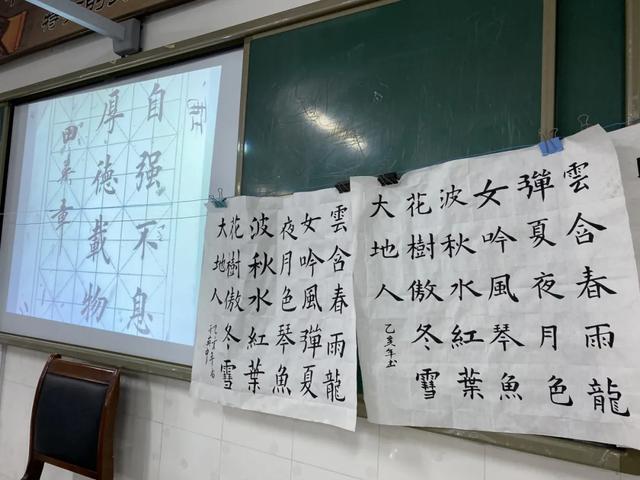 自强不息
厚德載物
田英章
雲含春雨龍
女吟風彈夏
夜月色琴魚
波秋水紅葉
花樹傲冬雪
大地人
雲含春雨龍
彈夏夜月色
女吟風琴魚
波秋水紅葉
花樹傲冬雪
大地人
乙亥年